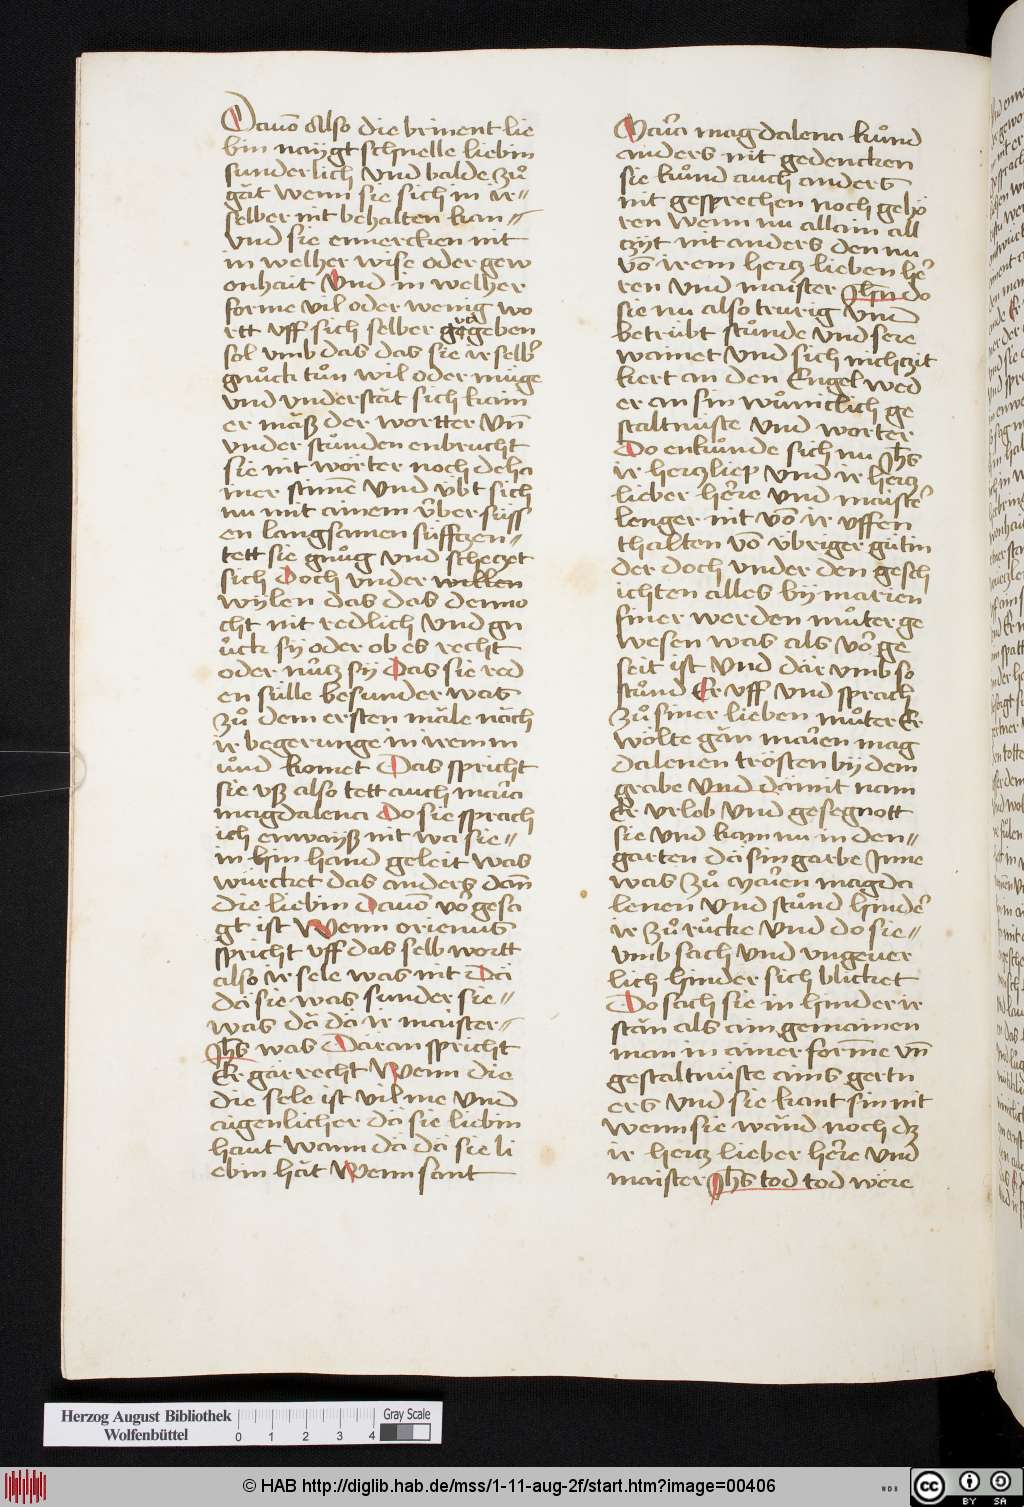 Dauō Also die brinent lie
bin naÿgt schnelle liebin
sunderlich vnd balde zů
gāt wenn sie sich in ir〃
selber nit behalten kan〃
vnd sie enmercken nit
in welher wise oder gew
onhait Vnd in welher
forme vil oder wenig wo
rtt vff sich selber geben
sol vmb das das sie ir selbʼ
gnůck tůn wil oder müge
vnd vnderstāt sich kain
er māß der wortter vn̄
vnder stůnden enbrucht
sie nit wörter noch deha
iner stim̄e vnd v̈bt sich
nu mit ainem v̈ber süss
en langsamen süfftzen〃
tett sie gnůg vnd schetzt
sich Doch vnder willen
wÿlen das das denno
cht nit redlich vnd gn
ůck sÿ oder ob es recht
oder nütz sÿ Das sie red
en sülle besunder was
zů dem ersten māle nāch
ir begerunge in irem m
ůnd komet Das spricht
sie vß also tett auch maria
magdalena Do sie sprach
ich enwaÿß nit wa sie〃
in hin hand geleit was
würcket das anders dan̄
die liebin Dauō vor gesa
gt ist Wenn orienus
spricht vff das selb wortt
also ir sele was nit Dā
dā sie was sunder sie〃
was dā dā ir maister〃
Jhs̄ was Dāran spricht
Er gar recht Wenn die
die sele ist vil me vnd
aigenlicher dā sie liebin
haut wann dā dā sie li
ebin hāt Wenn sant
Maria magdalena kůnd
anders nit gedencken
sie kůnd auch anders
nit gesprechen noch gehö
ren wenn nu allain all
czÿt nit anders den nu
vō irem hertz lieben heʼ
ren vnd maister Jhm̄ do
sie nu also trurig vnd
betrübt stůnde vnd sere
wainet vnd sich nichzit
kert an den Engel wed
er an sin wůnniclich ge
staltnüste vnd worter
Do enkůnde sich nu Jhs̄
ir hertzliep vnd ir hertz
lieber here vnd maisteʼ
lenger nit vō ir vffen
thalten vō v̈briger gütin
der doch vnder den gesch
ichten alles bÿ marien
siner werden můter ge
wesen was als vor ge
seit ist vnd dār vmb so
stůnd Er vff vnd sprach
zů siner lieben můter Er
wölte gān marien mag
dalenen trösten bÿ dem
grabe vnd dāmit nam
Er vrlob vnd gesegnott
sie vnd kam nu in den〃
garten dā sin garbe Inne
was zů marien magda
lenen vnd stůnd hindeʼ
ir zů rücke vnd do sie〃
vmb sach vnd vngeuer
lich hinder sich blicket
Do sach sie in hinder ir
stān als ain gemainen
man in ainer forme vn̄
gestaltnüste ains gertn
ers vnd sie kant sin nit
wenn sie wānd noch dz
ir hertz lieber here vnd
maister Jhs̄ tod tod were
Herzog August Bibliothek
Wolfenbüttel
0 1 2 3 4
Gray Scale
© HAB http://diglib.hab.de/mss/1-11-aug-2f/start.htm?image=00406
WDB
cc BY SA